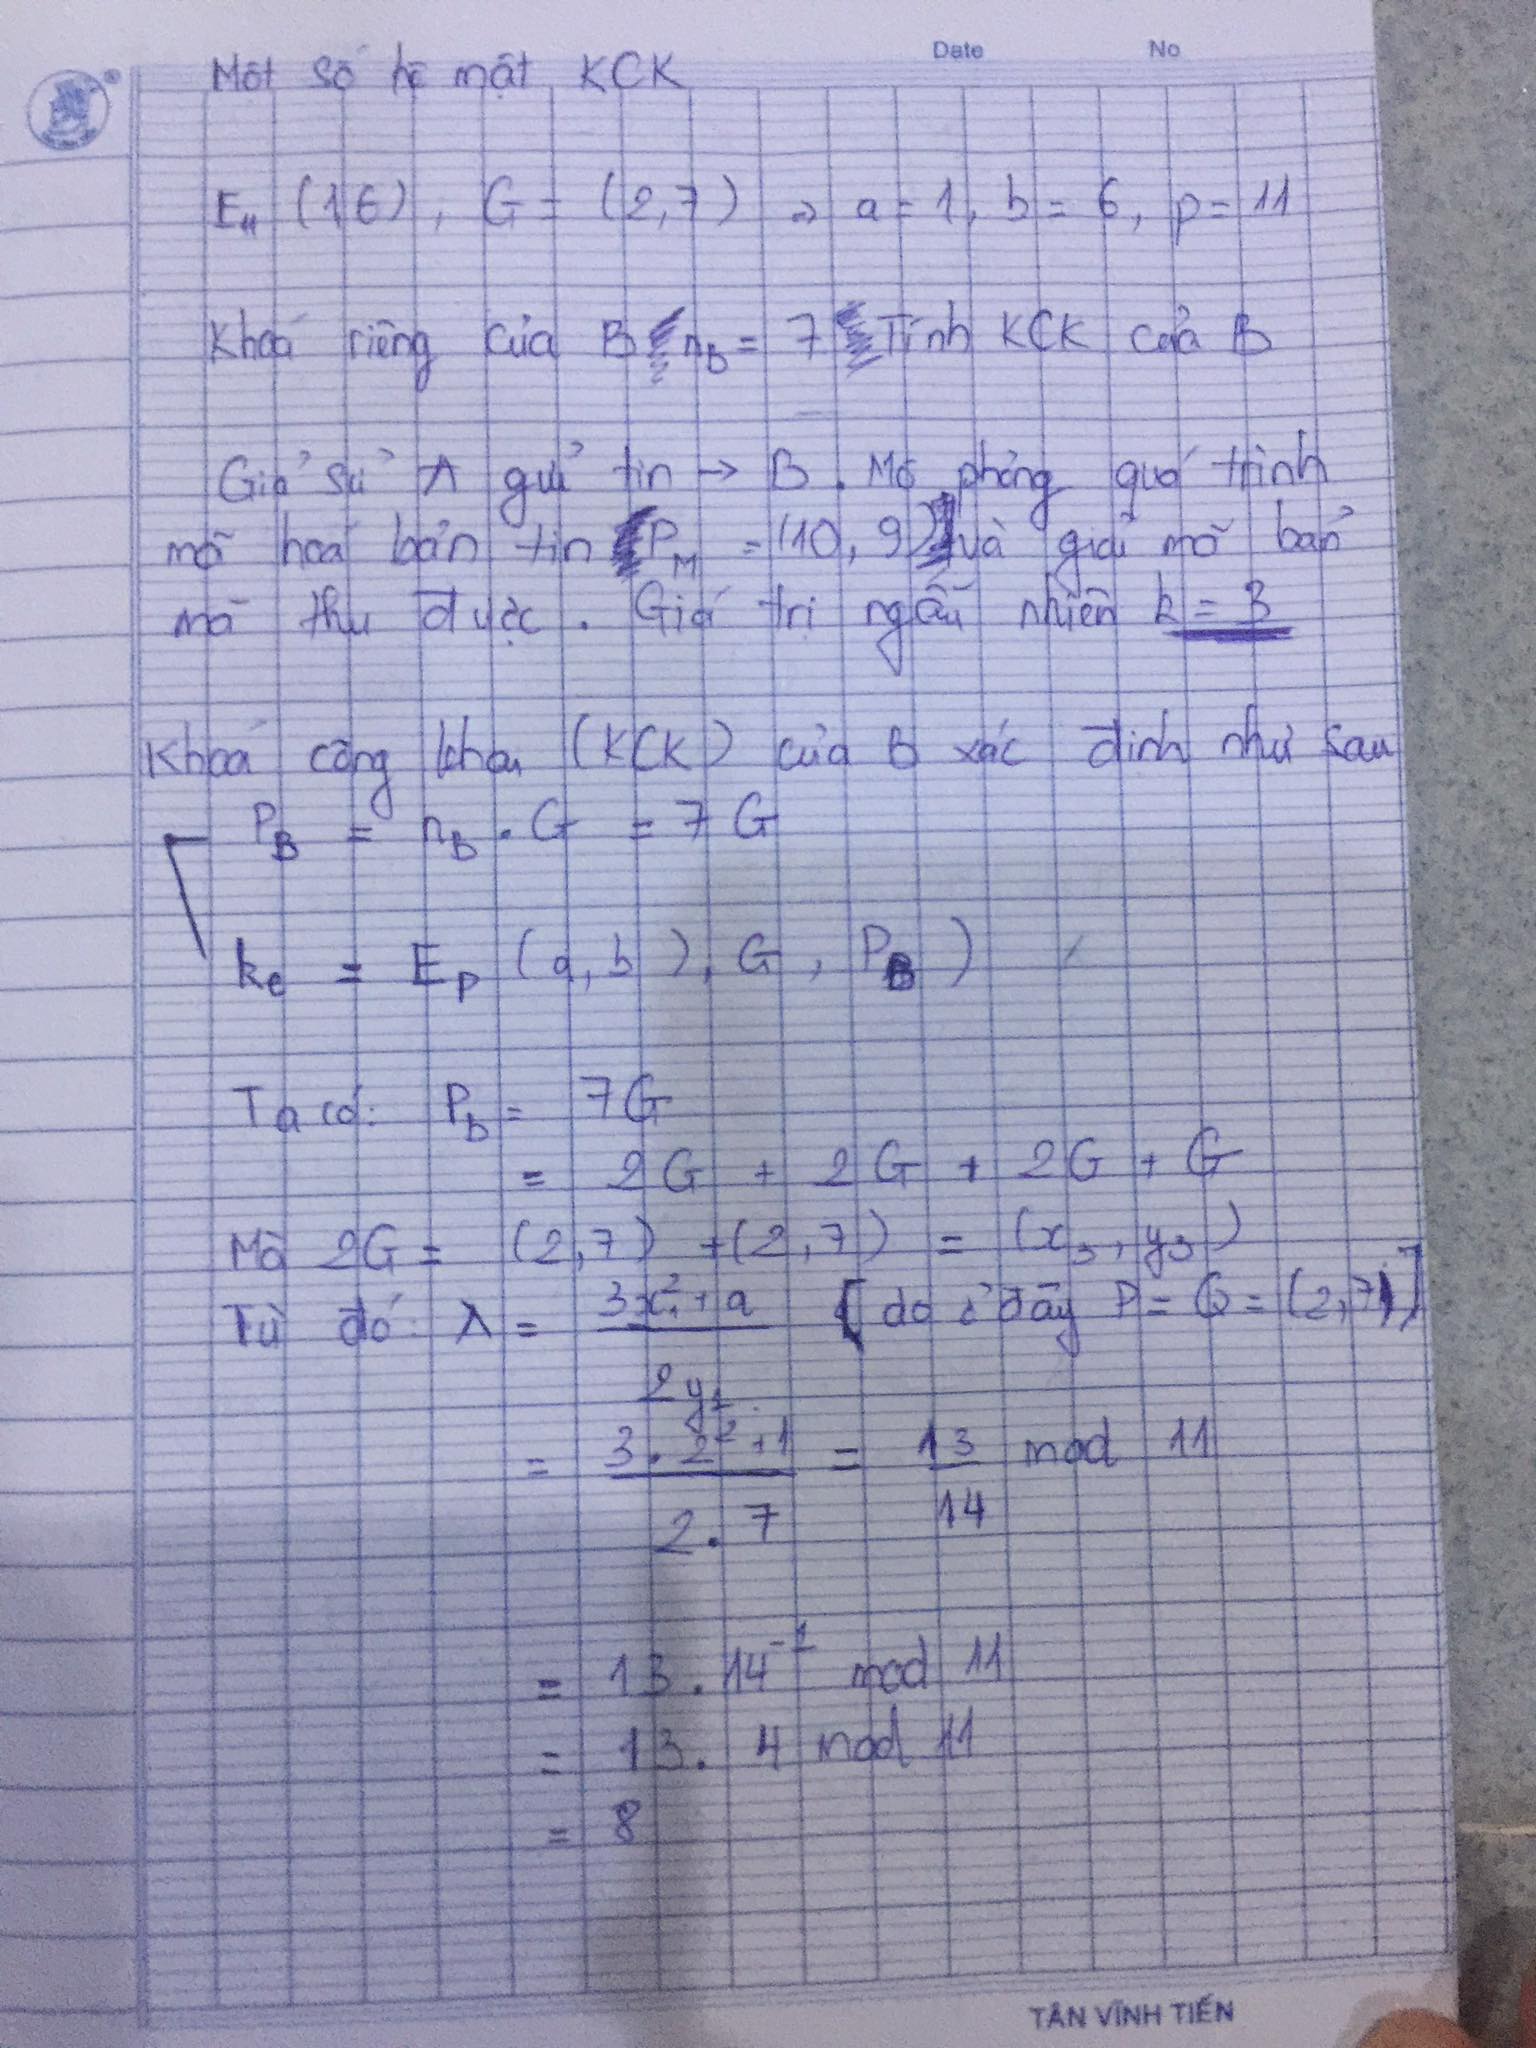 Date No
Một số hệ mật KCK
E₁₁ (1,6), G = (2,7) ⇒ a = 1, b = 6, p = 11
Khoá riêng của B n_B = 7 Tính KCK của B
Giả sử A gửi tin → B. Mô phỏng quá trình
mã hoá bản tin P_M = (10, 9) và giải mã bản
mã thu được. Giá trị ngẫu nhiên k = 3
Khoá công khai (KCK) của B xác định như sau
P_B = n_B . G = 7 G
k_e = E_p (a, b), G, P_B )
Ta có: P_b = 7G
= 2G + 2G + 2G + G
Mà 2G = (2,7) + (2,7) = (x₃, y₃)
Từ đó: λ = 3x₁² + a [ do ở đây P = Q = (2,7) ]
2y₁
= 3 . 2² + 1 = 13 mod 11
2 . 7 14
= 13 . 14⁻¹ mod 11
= 13 . 4 mod 11
= 8
TÂN VĨNH TIẾN